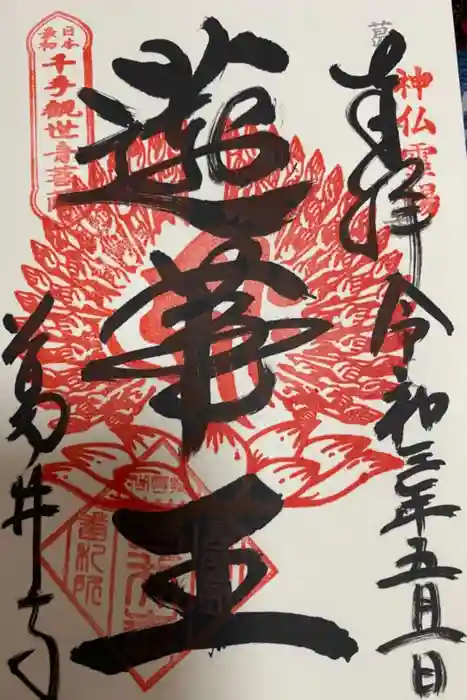 神仏霊場
奉拝
令和三年五月一日
蓮華王
日本最初
千手観世音菩薩
葛井寺
番札所